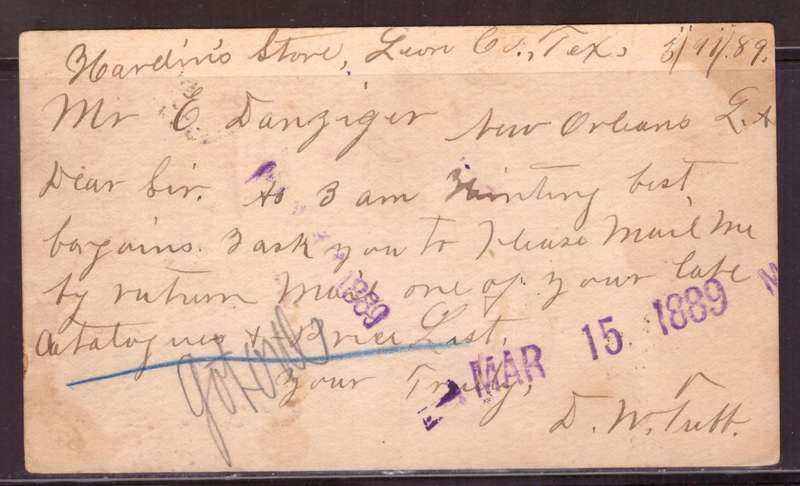 Hardin's Store, Leon Co., Tex. 3/11/89.
Mr E Danziger New Orleans La
Dear Sir. As I am Hunting best
bargains. I ask you to Please Mail Me
by return Mail one of your late
Catalogues & Price List.
Your Truly,
D. W. Tubb.
1889
MAR 15 1889
M